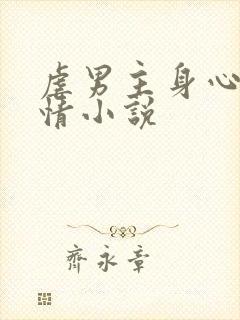 虐男主身心
情小說
齊永章